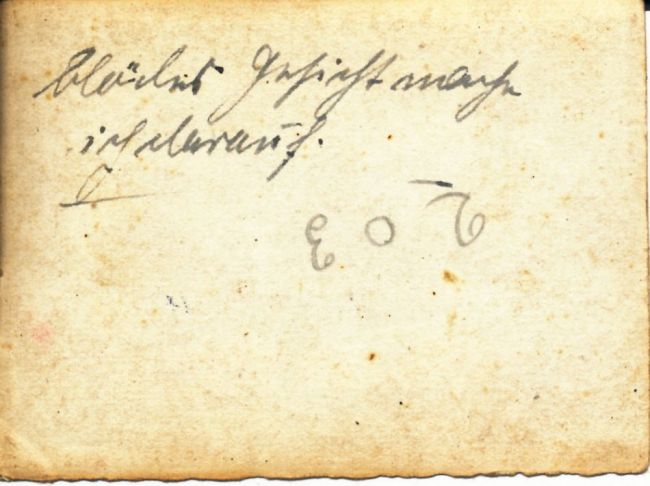 blödes Gesicht mache
ich darauf.